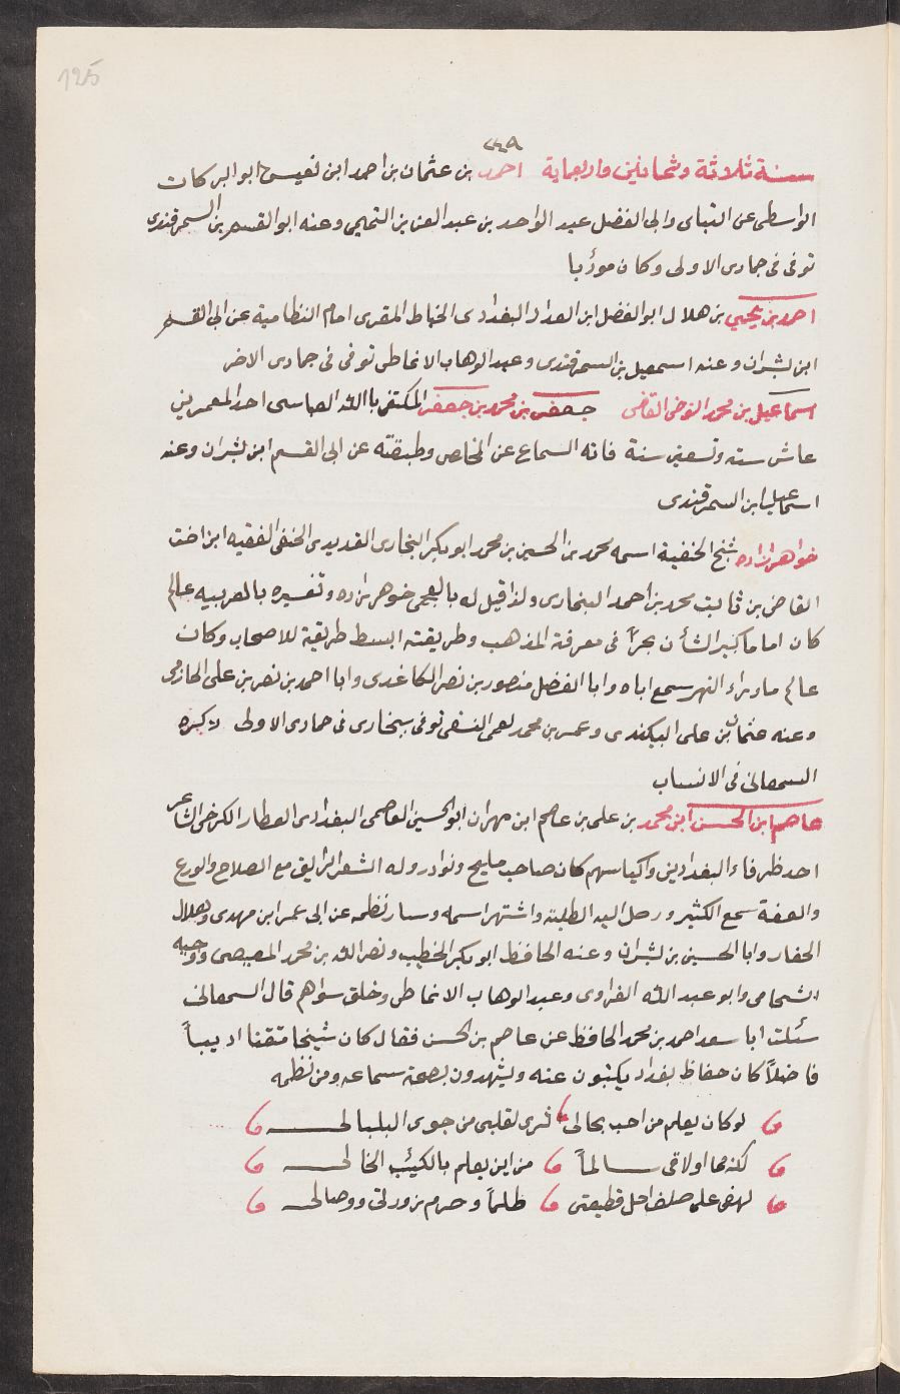 125
٢٤٩
سنة ثلاثة وثمانين واربعماية احمد بن عثمان بن احمد ابن نفيس ابو البركات
الواسطى عن التبانى وابى الفضل عبد الواحد بن عبد العزيز التميمى وعنه ابو القسم بن السمرقندى
توفى فى جمادى الاولى وكان مؤدبا
احمد بن يحيى بن هلال ابو الفضل ابن العداد البغدادى الخياط المقرى امام النظامية عن ابى القسم
ابن بشران وعنه اسمعيل بن السمرقندى وعبد الوهاب الانماطى توفى فى جمادى الاخر
اسماعيل بن محمد النوخى القاضى جعفر بن محمد بن جعفر المكتفى بالله العباسى احد المعمرين
عاش سته وتسعين سنة فاته السماع عن المخلص وطبقته عن ابى القسم ابن بشران وعنه
اسماعيل ابن السمرقندى
خواهرزاده شيخ الحنفية اسمه محمد بن الحسين بن محمد ابو بكر البخارى القديدى الحنفى الفقيه ابن اخت
القاضى بن ثابت محمد بن احمد البخارى ولذا قيل له بالعجمى خوهرزاده وتفسيره بالعربيه عالم
كان اماما كبير الشأن بحراً فى معرفة المذهب وطريقته ابسط طريقة للاصحاب وكان
عالم ماوراء النهر سمع اباه وابا الفضل منصور بن نصر الكاغدى وابا احمد بن نصر بن على الحازمى
وعنه عثمان بن على البيكندى وعمر بن محمد لعمى النسفى توفى ببخارى فى جمادى الاولى ذكره
السمعانى فى الانساب
عاصم ابن الحسن ابن محمد بن على بن عاصم ابن مهران ابو الحسين العاصمى البغدادى العطار الكرخى الشاعر
احد ظرفاء البغدادين واكياسهم كان صاحب مليح ونوادر وله الشعر الرايق مع الصلاح والورع
والعفة سمع الكثير ورحل اليه الطلبة واشتهر اسمه وسار نظمه عن ابى عمر ابن مهدى وهلال
الحفار وابا الحسين بن بشران وعنه الحافظ ابو بكر الخطيب ونصر الله بن محمد المصيصى ووجيه
الشحامى وابو عبد الله الفراوى وعبد الوهاب الانماطى وخلق سواهم قال السمعانى
سئلت ابا سعد احمد بن محمد الحافظ عن عاصم بن الحسن فقال كان شيخا متقنا اديباً
فاضلاً كان حفاظ بغداد يكتبون عنه ويشهدون بصحة سماعه ومن نظمه
لو كان يعلم من احب بحالى لرى لقلبى من جوى البلبالى
لكنه ما اولاقى سالماً من اين يعلم بالكئيب الخالى
لهفى على صلف احل قطيعتى ظلماً وحرم زورتى ووصالى